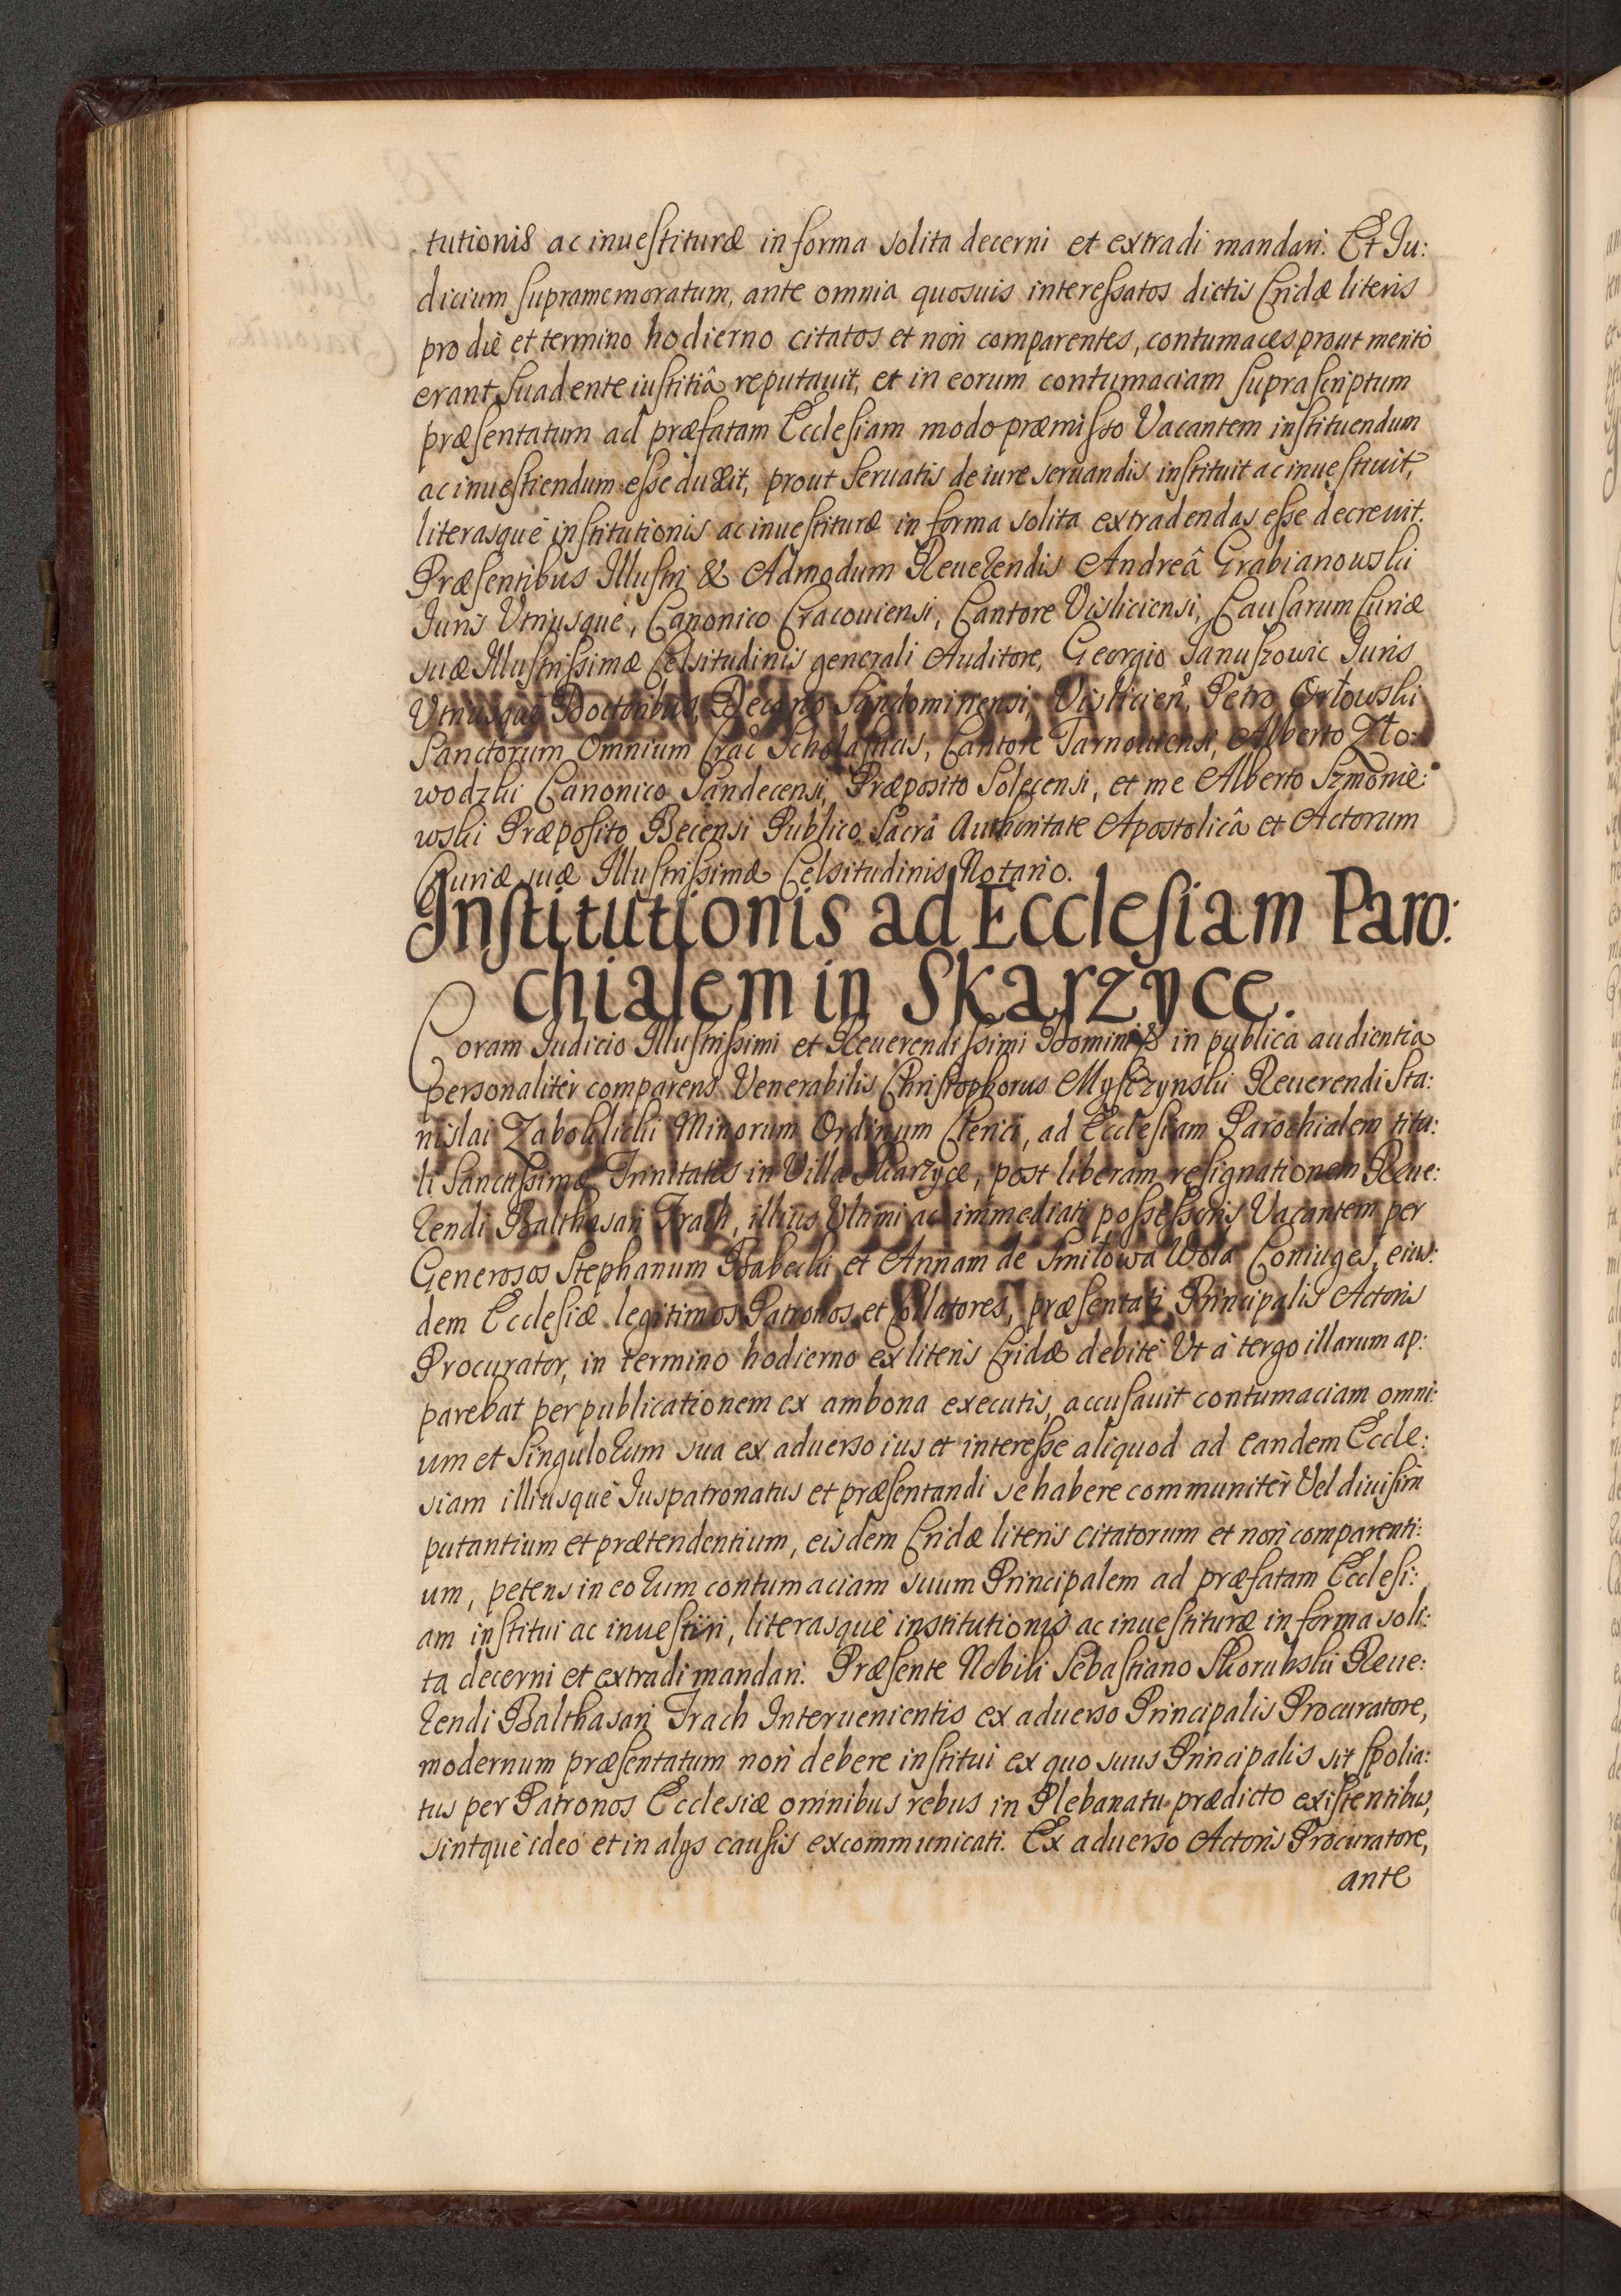 tutionis ac inuestituræ in forma solita decerni et extradi mandari. Et Iu:
dicium supramemoratum, ante omnia quosuis interessatos dictis Cridæ literis
pro die et termino hodierno citatos et non comparentes, contumaces prout meritò
erant, suadente iustitiâ reputauit, et in eorum contumaciam suprascriptum
præsentatum ad præfatam Ecclesiam modo præmisso Vacantem instituendum
ac inuestiendum esse duxit, prout seruatis de iure seruandis instituit ac inuestiuit,
literasquè institutionis ac inuestituræ in forma solita extradendas esse decreuit.
Præsentibus Illustri & Admodum Reuerendis Andreâ Grabianowski
Iuris Vtriusquè, Canonico Cracouiensi, Cantore Visliciensi, Causarum Curiæ
suæ Illustrissimæ Celsitudinis generali Auditore, Georgio Ianuszowic Iuris
Vtriusquè Doctoribus, Decano Sandomiriensi, Vislicien, Petro Orłowski
Sanctorum Omnium Crac Scholasticis, Cantore Tarnouiensi, Alberto Zło:
wodzki Canonico Sandecensi, Præposito Solecensi, et me Alberto Szmonie:
wski Præposito Becensi Publico Sacrâ Authoritate Apostolicâ et Actorum
Curiæ suæ Illustrissimæ Celsitudinis Notario.
Institutionis ad Ecclesiam Paro:
chialem in Skarzyce.
Coram Iudicio Illustrissimi et Reuerendissimi Domini & in publica audientia
personalitèr comparens Venerabilis Christophorus Myszczynski Reuerendi Sta:
nislai Zabokliclii Minorum Ordinum Clerici, ad Ecclesiam Parochialem titu:
li Sanctissimæ Trinitatis in Villa Skarzyce, post liberam resignationem Reue:
rendi Balthasari Trach, illius Vltimi ac immediati possessoris Vacantem per
Generosos Stephanum Babecki et Annam de Smiłowa Wola Coniuges, eius:
dem Ecclesiæ legitimos Patronos et Collatores, præsentati Principalis Actoris
Procurator, in termino hodierno ex literis Cridæ debitè Vt à tergo illarum ap:
parebat per publicationem ex ambona executis, accusauit contumaciam omni:
um et singulorum sua ex aduerso ius et interesse aliquod ad eandem Eccle:
siam illiusquè Iuspatronatus et præsentandi se habere communitèr Vel diuisim
putantium et prætendentium, eisdem Cridæ literis citatorum et non comparenti:
um, petens in eorum contumaciam suum Principalem ad præfatam Ecclesi:
am institui ac inuestiri, literasquè institutionis ac inuestituræ in forma soli:
ta decerni et extradi mandari. Præsente Nobili Sebastiano Skorubski Reue:
rendi Balthasari Trach Interuenientis ex aduerso Principalis Procuratore,
modernum præsentatum non debere institui ex quo suus Principalis sit spolia:
tus per Patronos Ecclesiæ omnibus rebus in Plebanatu prædicto existentibus,
sintquè ideo et in alys causis excommunicati. Ex aduerso Actoris Procuratore,
ante